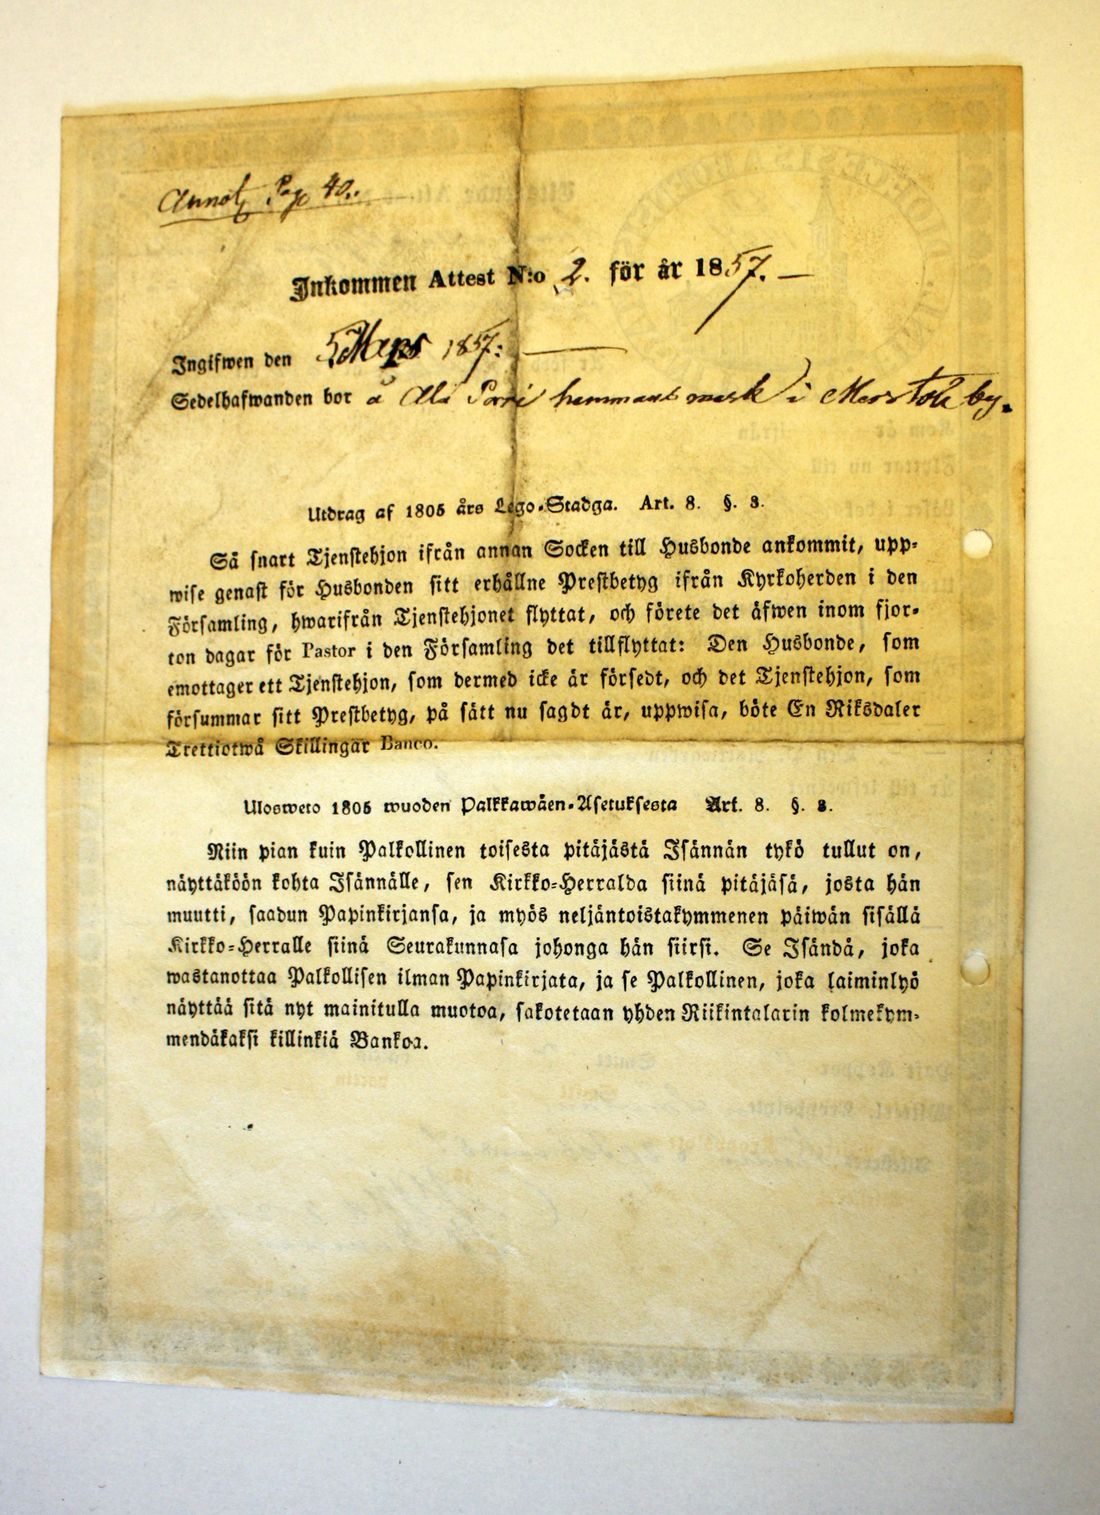 Annot. Pag 40.
Inkommen Attest N:o 2. för år 1857.
Ingifwen den 5 Mars 1857:
Sedelhafwanden bor å Ala Parri hemmans mark i by.
Utdrag af 1805 års Lego-Stadga. Art. 8. §. 3.
Så snart Tjenstehjon ifrån annan Socken till Husbonde ankommit, upp-
wise genast för Husbonden sitt erhållne Prestbetyg ifrån Kyrkoherden i den
Församling, hwarifrån Tjenstehjonet flyttat, och förete det äfwen inom fjor-
ton dagar för Pastor i den Församling det tillflyttat: Den Husbonde, som
emottager ett Tjenstehjon, som dermed icke är försedt, och det Tjenstehjon, som
försummar sitt Prestbetyg, på sätt nu sagdt är, uppwisa, böte En Riksdaler
Trettiotwå Skillingar Banco.
Ulosweto 1805 wuoden Palkkawäen-Asetuksesta Art. 8. §. 3.
Niin pian kuin Palkollinen toisesta pitäjästä Isännän tykö tullut on,
näyttäköön kohta Isännälle, sen Kirkko-Herralda siinä pitäjäsä, josta hän
muutti, saadun Papinkirjansa, ja myös neljäntoistakymmenen päiwän sisällä
Kirkko-Herralle siinä Seurakunnasa johonga hän siirsi. Se Isändä, joka
wastanottaa Palkollisen ilman Papinkirjata, ja se Palkollinen, joka laiminlyö
näyttää sitä nyt mainitulla muotoa, sakotetaan yhden Riikintalarin kolmekym-
mendäkaksi killinkiä Bankoa.